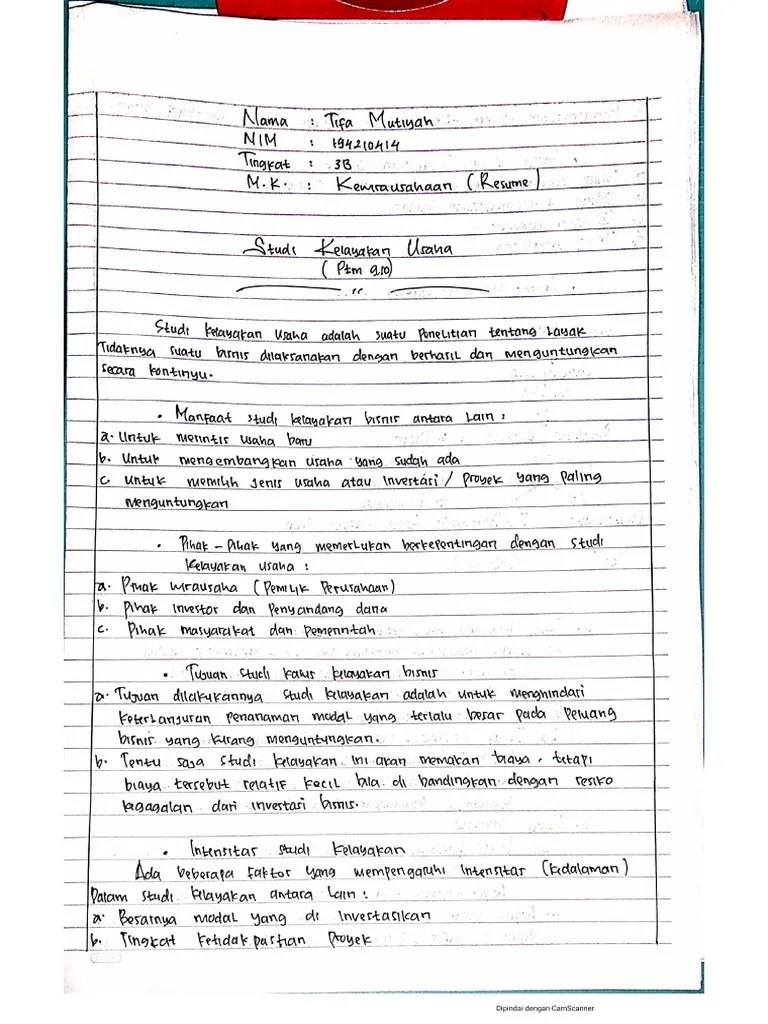 Nama : Tifa Mutiyah
NIM : 194210414
Tingkat : 3B
M.K. : Kewirausahaan (Resume)
Studi Kelayakan Usaha
(Ptm 9,10)
Studi kelayakan usaha adalah suatu penelitian tentang layak
Tidaknya suatu bisnis dilaksanakan dengan berhasil dan menguntungkan
secara kontinyu.
• Manfaat studi kelayakan bisnis antara lain :
a. Untuk merintis usaha baru
b. Untuk mengembangkan usaha yang sudah ada
c. Untuk memilih jenis usaha atau investasi / proyek yang paling
menguntungkan
• Pihak - Pihak yang memerlukan berkepentingan dengan studi
kelayakan usaha :
a. Pihak wirausaha (Pemilik Perusahaan)
b. Pihak investor dan Penyandang dana
c. Pihak masyarakat dan pemerintah
• Tujuan studi kasus kelayakan bisnis
a. Tujuan dilakukannya studi kelayakan adalah untuk menghindari
keterlanjuran penanaman modal yang terlalu besar pada peluang
bisnis yang kurang menguntungkan.
b. Tentu saja studi kelayakan ini akan memakan biaya, tetapi
biaya tersebut relatif kecil bila di bandingkan dengan resiko
kegagalan dari investasi bisnis.
• Intensitas studi kelayakan
Ada beberapa faktor yang mempengaruhi intensitas (kedalaman)
Dalam studi kelayakan antara lain :
a. Besarnya modal yang di investasikan
b. Tingkat ketidak pastian proyek
Dipindai dengan CamScanner